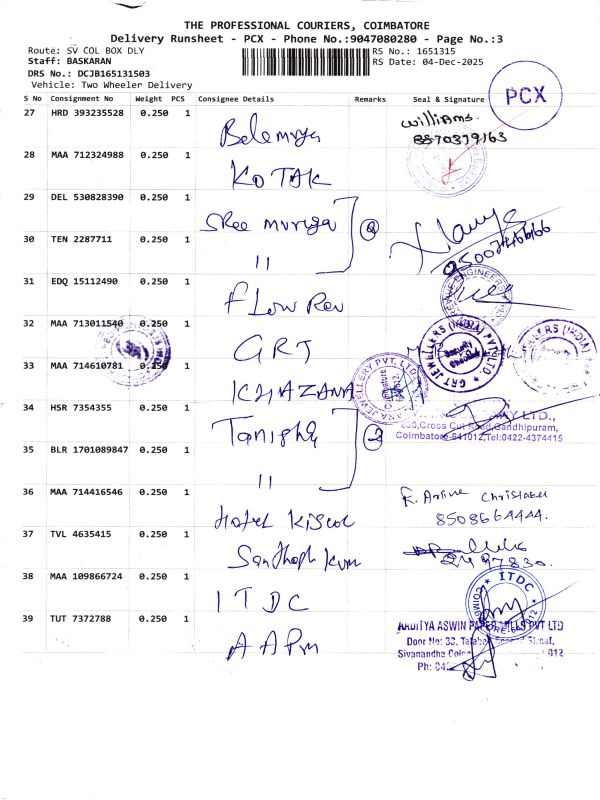 THE PROFESSIONAL COURIERS, COIMBATORE
Delivery Runsheet - PCX - Phone No.:9047080280 - Page No.:3
Route: SV COL BOX DLY
RS No.: 1651315
Staff: BASKARAN
RS Date: 04-Dec-2025
DRS No.: DCJB165131503
Vehicle: Two Wheeler Delivery
PCX
S No Consignment No Weight PCS Consignee Details Remarks Seal & Signature
27 HRD 393235528 0.250 1
Williams.
28 MAA 712324988 0.250 1 KOTAK
29 DEL 530828390 0.250 1 Sree muruga
2
30 TEN 2287711 0.250 1 11
31 EDQ 15112490 0.250 1 Flow Rev
32 MAA 713011540 0.250 1 GRT
GRT JEWELLERS (INDIA) PVT LTD
Security
33 MAA 714610781 0.250 1 KHAZANA
34 HSR 7354355 0.250 1 Tanishq
2
Cross Cut Road, Gandhipuram,
Coimbatore-641012, Tel:0422-4374415
35 BLR 1701089847 0.250 1 11
36 MAA 714416546 0.250 1 Hotel Kiscol
8508664444.
37 TVL 4635415 0.250 1
38 MAA 109866724 0.250 1 ITDC
ITDC
39 TUT 7372788 0.250 1 AAPM
AADITYA ASWIN PAPER MILLS PVT LTD
Door No: 33,
Sivanandha
Ph: